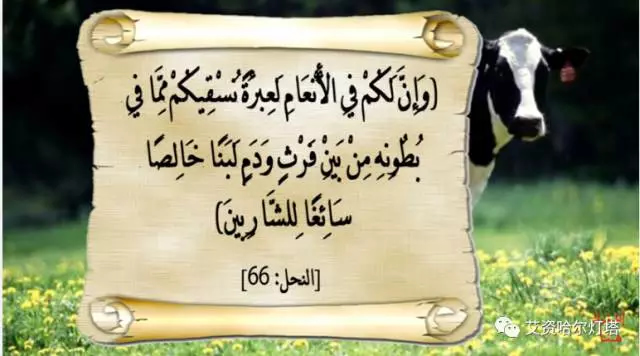 (وَإِنَّ لَكُمْ فِي الْأَنْعَامِ لَعِبْرَةً نُسْقِيكُمْ مِمَّا فِي
بُطُونِهِ مِنْ بَيْنِ فَرْثٍ وَدَمٍ لَبَنًا خَالِصًا
سَائِغًا لِلشَّارِبِينَ)
[النحل: 66]
艾资哈尔灯塔